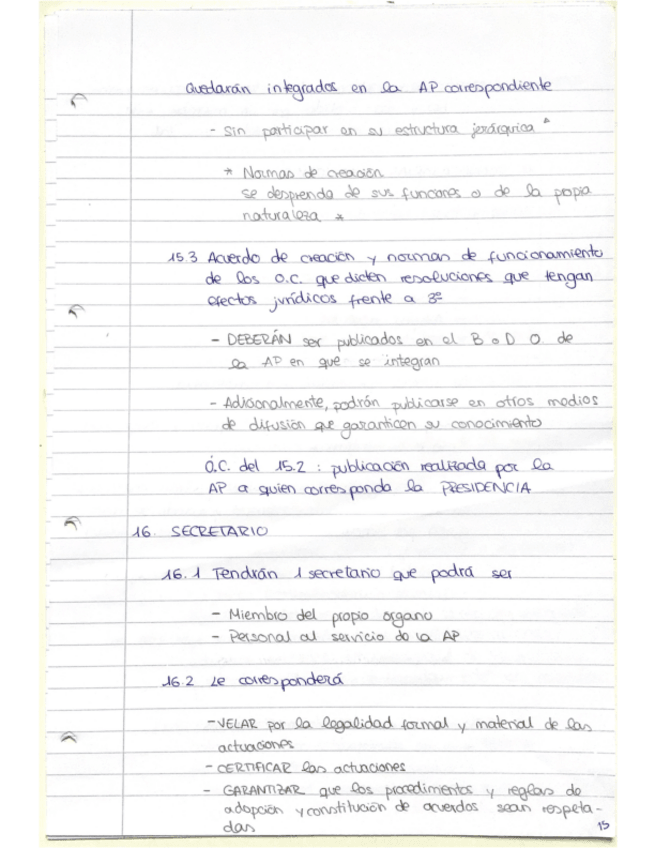 Quedarán integrados en la AP correspondiente
- Sin participar en su estructura jerárquica *
* Normas de creación
se desprenda de sus funciones o de la propia
naturaleza *
15.3 Acuerdo de creación y normas de funcionamiento
de los O.C. que dicten resoluciones que tengan
efectos jurídicos frente a 3º
- DEBERÁN ser publicados en el B o D O. de
la AP en que se integran
- Adicionalmente, podrán publicarse en otros medios
de difusión que garanticen su conocimiento
O.C. del 15.2 : publicación realizada por la
AP a quien corresponda la PRESIDENCIA
16. SECRETARIO
16.1 Tendrán 1 secretario que podrá ser
- Miembro del propio órgano
- Personal al servicio de la AP
16.2 Le corresponderá
- VELAR por la legalidad formal y material de las
actuaciones
- CERTIFICAR las actuaciones
- GARANTIZAR que los procedimientos y reglas de
adopción y constitución de acuerdos sean respeta-
das
15